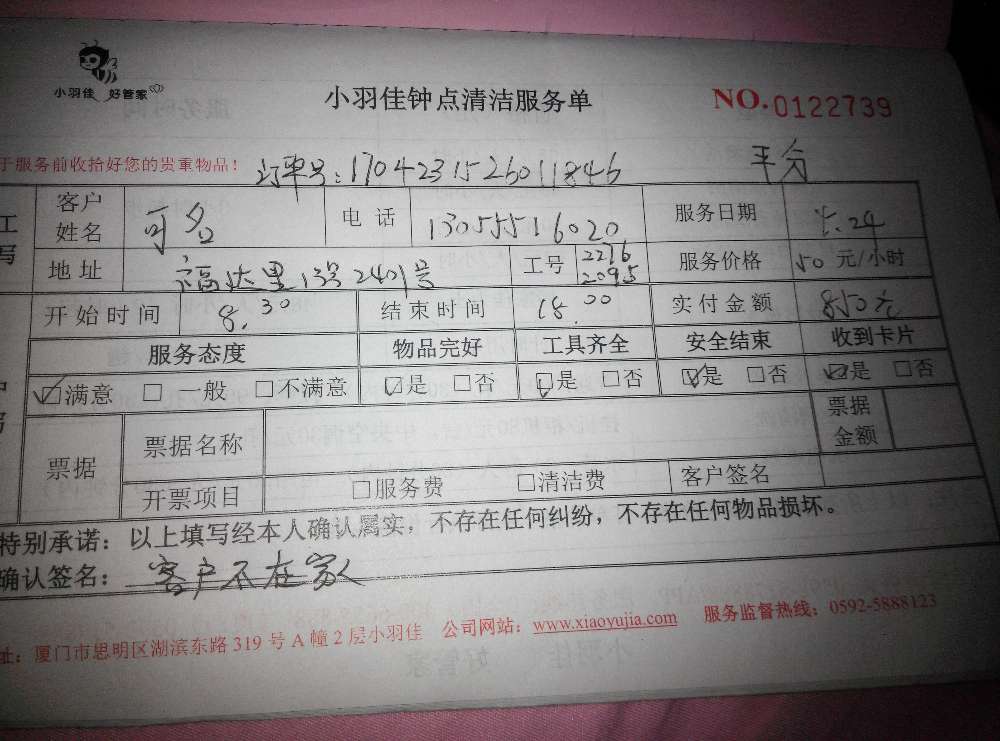 小羽佳 好管家
小羽佳钟点清洁服务单
NO.0122739
于服务前收拾好您的贵重物品！
订单号：1704231526011846 平分
客户姓名 可名 电话 13055516020 服务日期 5.24
地址 福达里13号2401号 工号 2276 2095 服务价格 50元/小时
开始时间 8.30 结束时间 18.00 实付金额 850元
服务态度 物品完好 工具齐全 安全结束 收到卡片
☑满意 □一般 □不满意 ☑是 □否 ☑是 □否 ☑是 □否 ☑是 □否
票据 票据名称 票据金额
开票项目 □服务费 □清洁费 客户签名
特别承诺：以上填写经本人确认属实，不存在任何纠纷，不存在任何物品损坏。
确认签名：客户不在家
址：厦门市思明区湖滨东路319号A幢2层小羽佳 公司网站：www.xiaoyujia.com 服务监督热线：0592-5888123